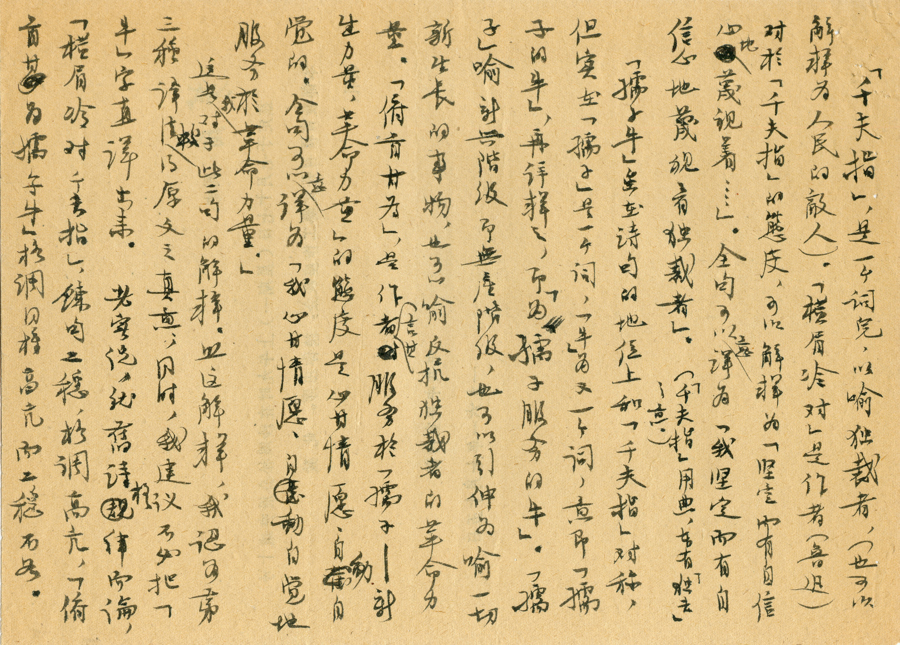 「千夫指」，是一个词完，以喻独裁者，（也可以
解释为人民的敌人）。「横眉冷对」是作者（鲁迅）
对於「千夫指」的态度，可以解释为「坚定而有自信
心地蔑视着……」。全句可以意译为「我坚定而有自
信心地蔑视着独裁者」。（「千夫指」用典，若有「独夫」
之意。）
「孺子牛」虽在诗句的地位上和「千夫指」对称，
但实在「孺子」是一个词，「牛」为又一个词，意即「孺
子的牛」，再详释之，即为「为孺子服务的牛」。「孺
子」喻新兴阶级即无产阶级，也可以引伸为喻一切
新生长的事物，也可喻反抗独裁者的革命力
量。「俯首甘为」，是作者自甘服务於「孺子——新
生力量，革命力量」的态度是心甘情愿、自动自
觉的。全句可以意译为「我心甘情愿、自动自觉地
服务於革命力量。」
这是我对于此二句的解释。照这解释，我认为第
三种译法较得原文之真意，同时，我建议不必把「
牛」字直译出来。老实说，就旧诗格律而论，
「横眉冷对千夫指」，鍊句工稳，格调高亢，「俯
首甘为孺子牛」格调同样高亢而工稳不如。